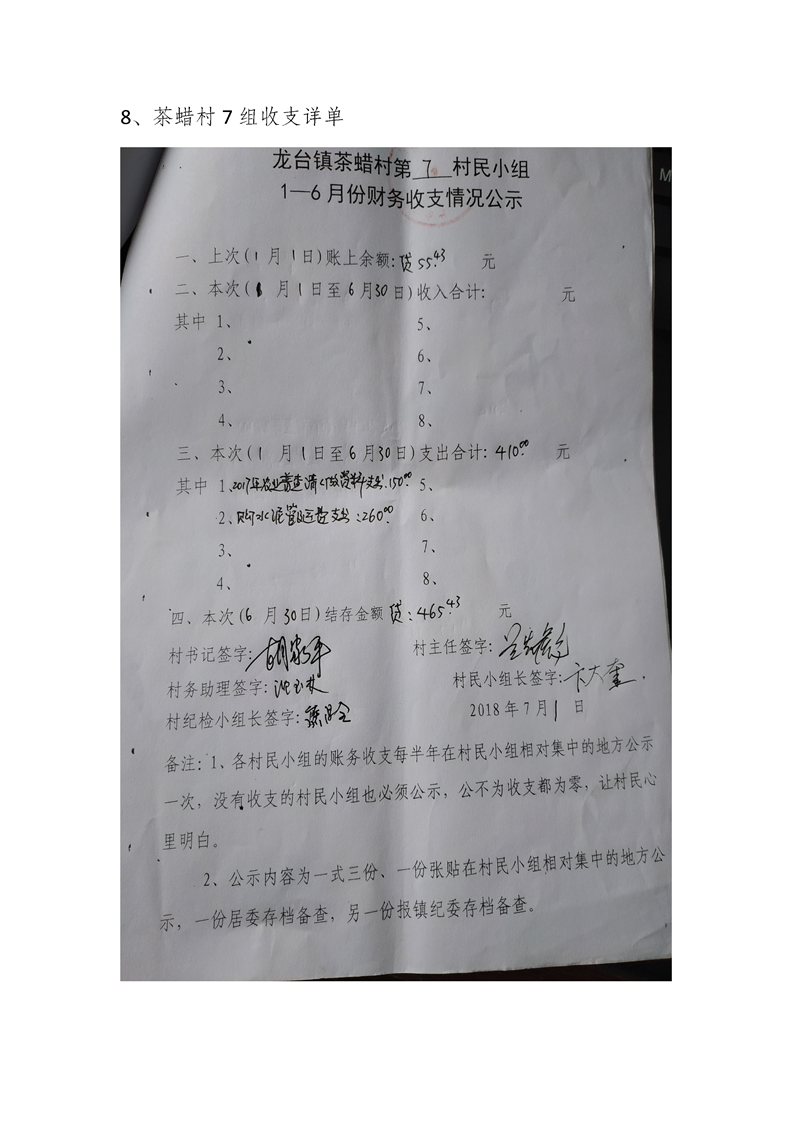 8、茶蜡村 7 组收支详单
M
龙台镇茶蜡村第 7 村民小组
1—6 月份财务收支情况公示
一、上次(1 月 1 日)账上余额: 贷 55.43 元
二、本次(1 月 1 日至 6 月 30 日)收入合计: 元
其中 1、 5、
2、 6、
3、 7、
4、 8、
三、本次(1 月 1 日至 6 月 30 日)支出合计: 410.00 元
其中 1、2017年农业普查清 资料支出:150.00 5、
2、购水泥管及运费支出:260.00 6、
3、 7、
4、 8、
四、本次(6 月 30 日)结存金额 贷:465.43 元
村书记签字: 村主任签字:
村务助理签字: 村民小组长签字:卞大奎
村纪检小组长签字: 2018 年 7 月 1 日
备注: 1、各村民小组的账务收支每半年在村民小组相对集中的地方公示
一次, 没有收支的村民小组也必须公示, 公不为收支都为零, 让村民心
里明白。
2、公示内容为一式三份、一份张贴在村民小组相对集中的地方公
示, 一份居委存档备查, 另一份报镇纪委存档备查。